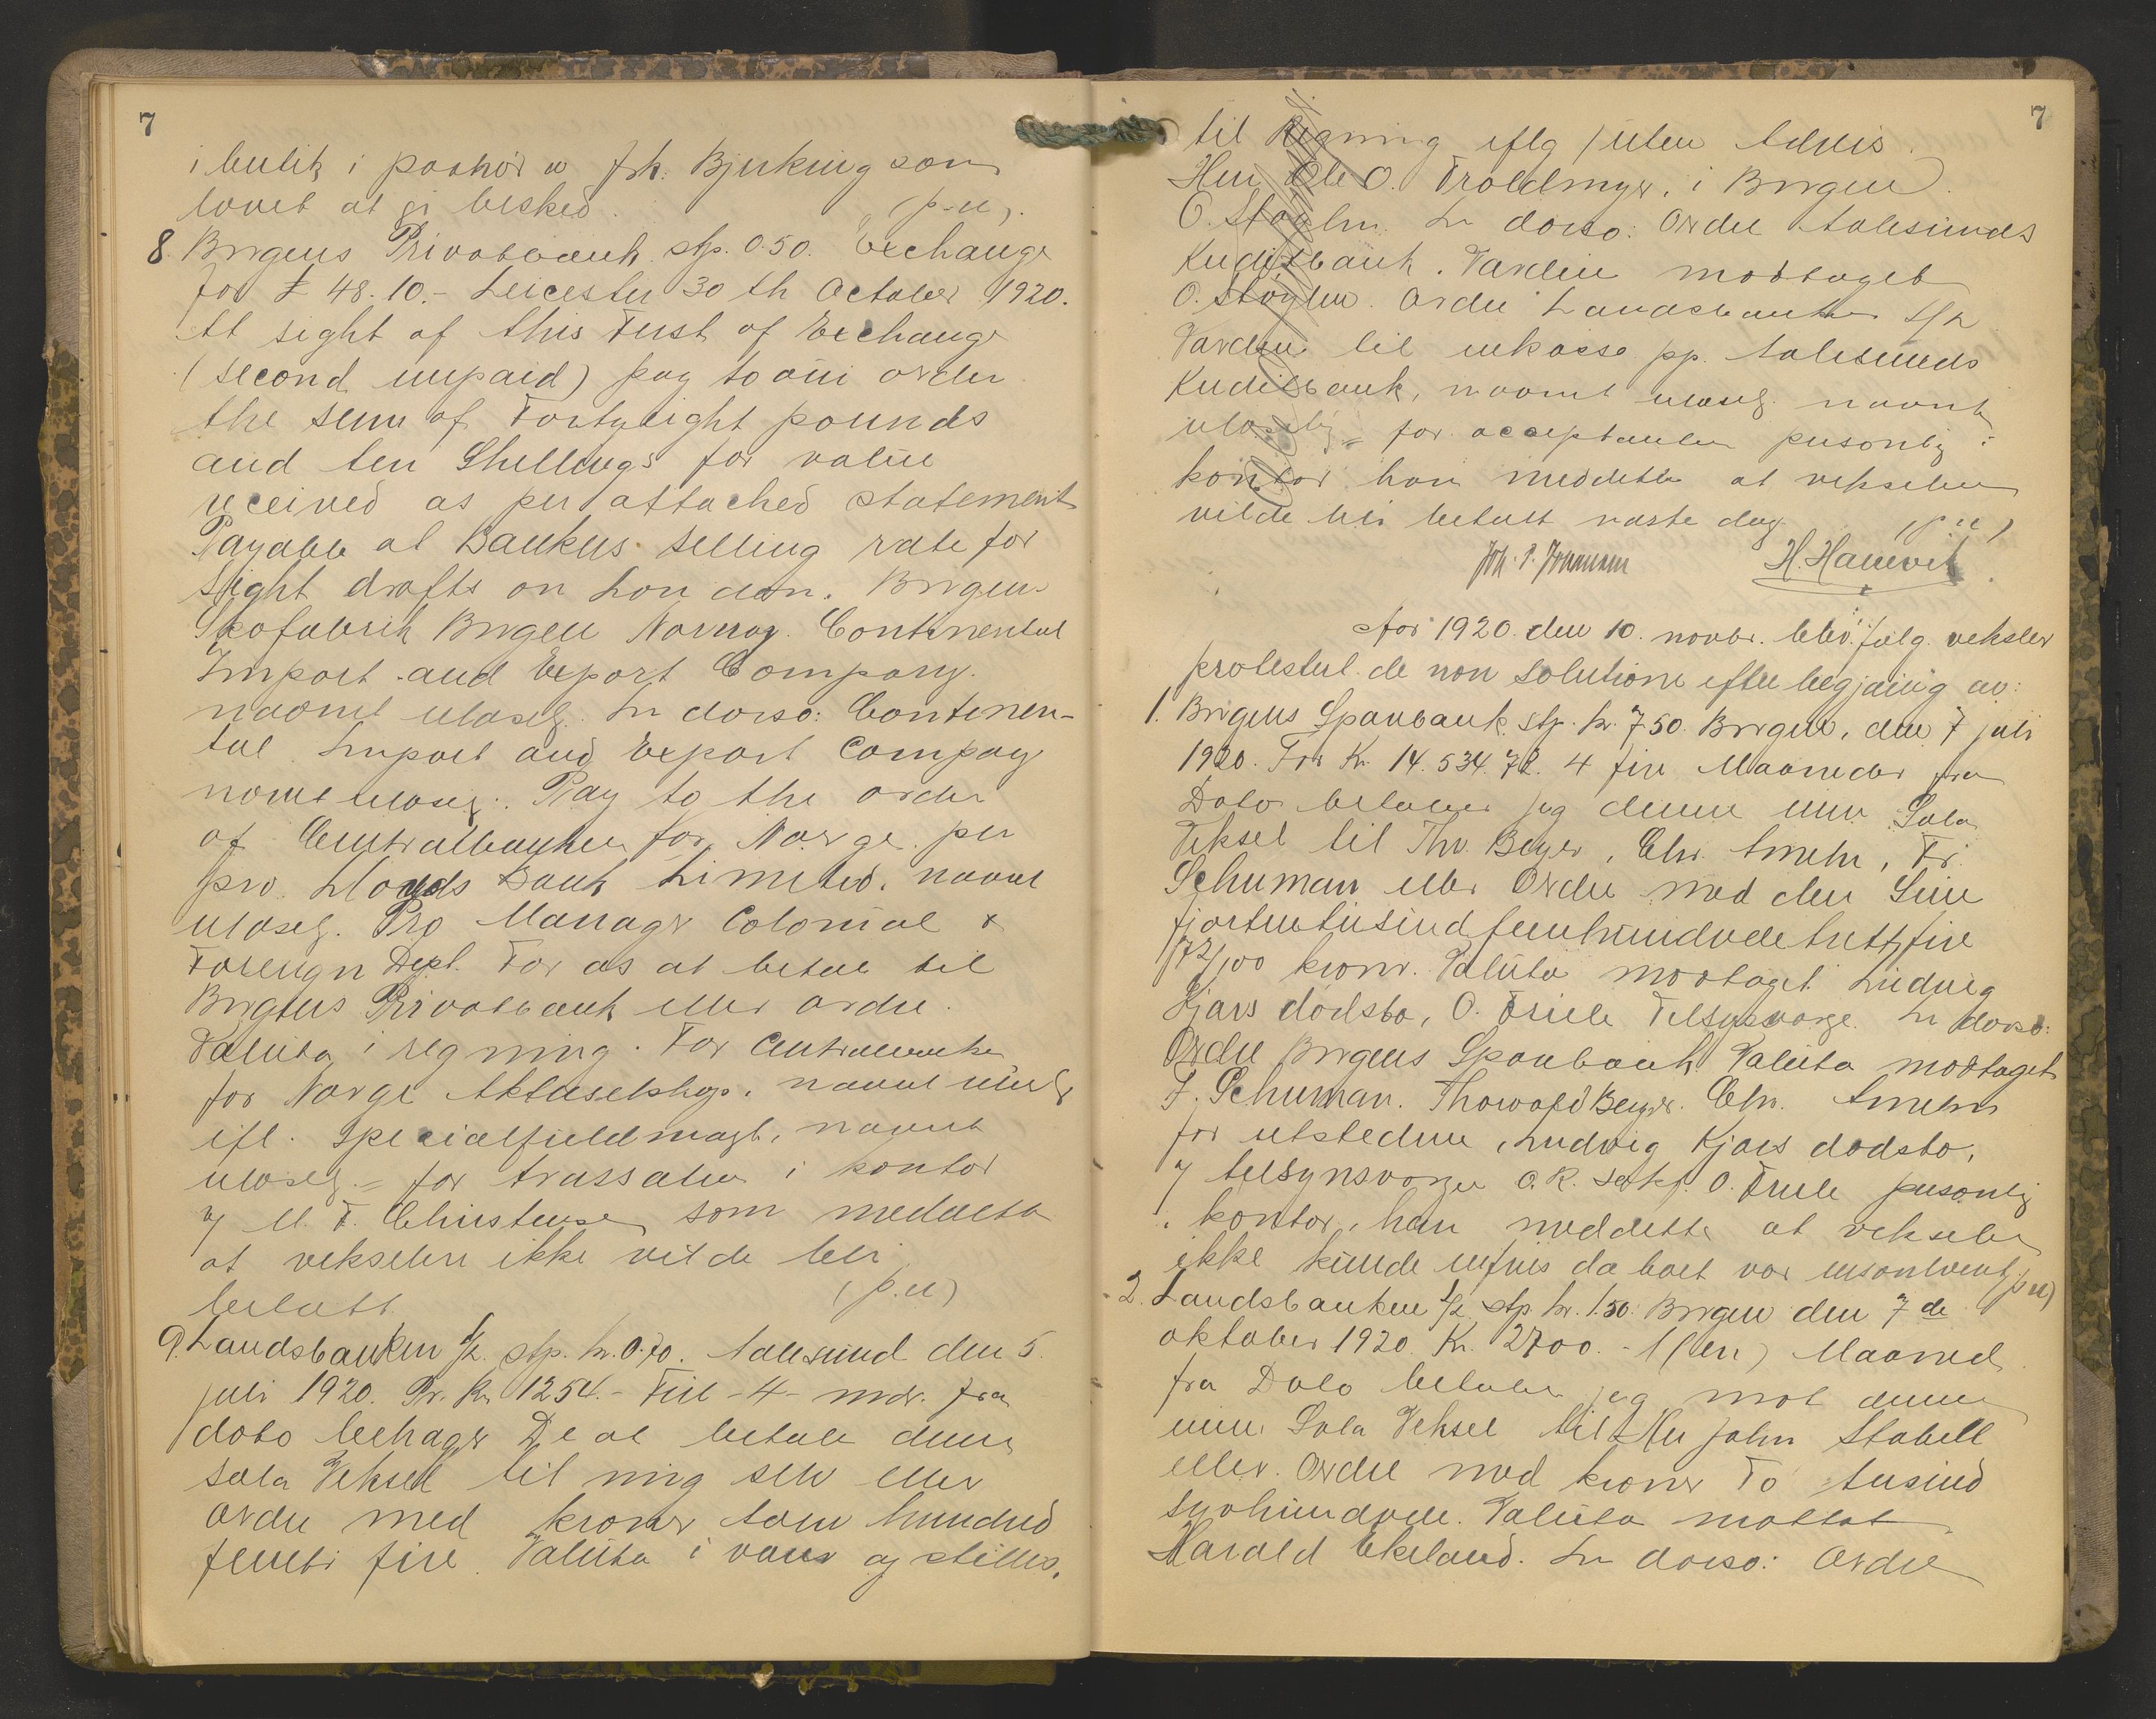 7
i butik i paahør av frk. Bjerking som
lovet at gi besked. (p.u).
8. Bergens Privatbank stp. 0.50. Exchange
for £ 48.10.- Leicester 30 th October 1920.
At sight of this First of Exchange
(second unpaid) pay to our order
the sum of Fortyeight pounds
and ten Shillings for value
received as per attached statement
Payable at Bankers selling rate for
Sight drafts on London. Bergens
Skofabrik Bergen Norway. Continental
Import and Export Company.
navnet ulæselig. In dorso: Continen-
tal Import and Export Compay
navnet ulæselig: Pay to the order
of Centralbanken for Norge per
pro. Lloyds Bank Limited. navnet
ulæselig. Pro Manager Colonial &
Foreign Dept. For os at betale til
Bergens Privatbank eller ordre.
Valuta i regning. For Centralbanken
for Norge Aktieselskap. navnet ulæselig
ifl. specialfuldmagt, navnet
ulæselig = for trassaten i kontor
af M. F. Christensen som meddelte
at vekselen ikke vilde bli
betalt. (p.u)
9. Landsbanken A/L. stp. kr. 0.70. Aalesund den 5.
juli 1920. Pr. Kr 1254.- Fire -4- mdr. fra
dato behager De at betale denne
sola Veksel til mig selv eller
ordre med kroner tolv hundred
femti fire. Valuta i varer og stilles.
7
til Regning iflg /uten Advis.
Herr Ole O. Troldmyr, i Bergen.
O. Støylen. In dorso: Ordre Aalesunds
Kreditbank. Værdien modtaget
O. Støylen. Ordre Landsbanken A/L
Værdien til inkasso pp. Aalesunds
Kreditbank, navnet ulæselig navnet
ulæselig = for acceptanten personlig i
kontor han meddelte at vekselen
vilde bli betalt næste dag. (p.u)
Joh. P. Johansen H. Hamvik
Aar 1920. den 10. novbr. blev følg. veksler
protestert de non solutione efter begjæring av:
1. Bergens Sparebank. stp. kr. 7.50. Bergen, den 7 juli
1920. For Kr. 14.534.72. 4 fire Maaneder fra
Dato betaler jeg denne min Sola
Veksel til Thv. Beyer, Chr. Ameln, Fr.
Schuman eller Ordre med den Sum
fjortentusind femhundrede trettifire
72/100 kroner. Valuta modtaget. Ludvig
Kjærs dødsbo, O. Friele Tilsynsværge. In dorso:
Ordre Bergens Sparebank Valuta modtaget
F. Schuman. Thorvald Beyer. Chr. Ameln
for utstederen, Ludvig Kjærs dødsbo,
v/ tilsynsværgen O.R. sakf. O. Friele personlig
i kontor, han meddelte at vekselen
ikke kunde infries da boet var insolvent (p.u)
2. Landsbanken A/L stp. kr. 1.50. Bergen den 7 de
oktober 1920. Kr. 2700.- 1 (en) Maaned
fra Dato betaler jeg mot denne
min Sola Veksel til Herr John Stabell
eller Ordre med kroner To tusind
syvhundrede. Valuta mottat
Harald Ekeland. In dorso: Ordre